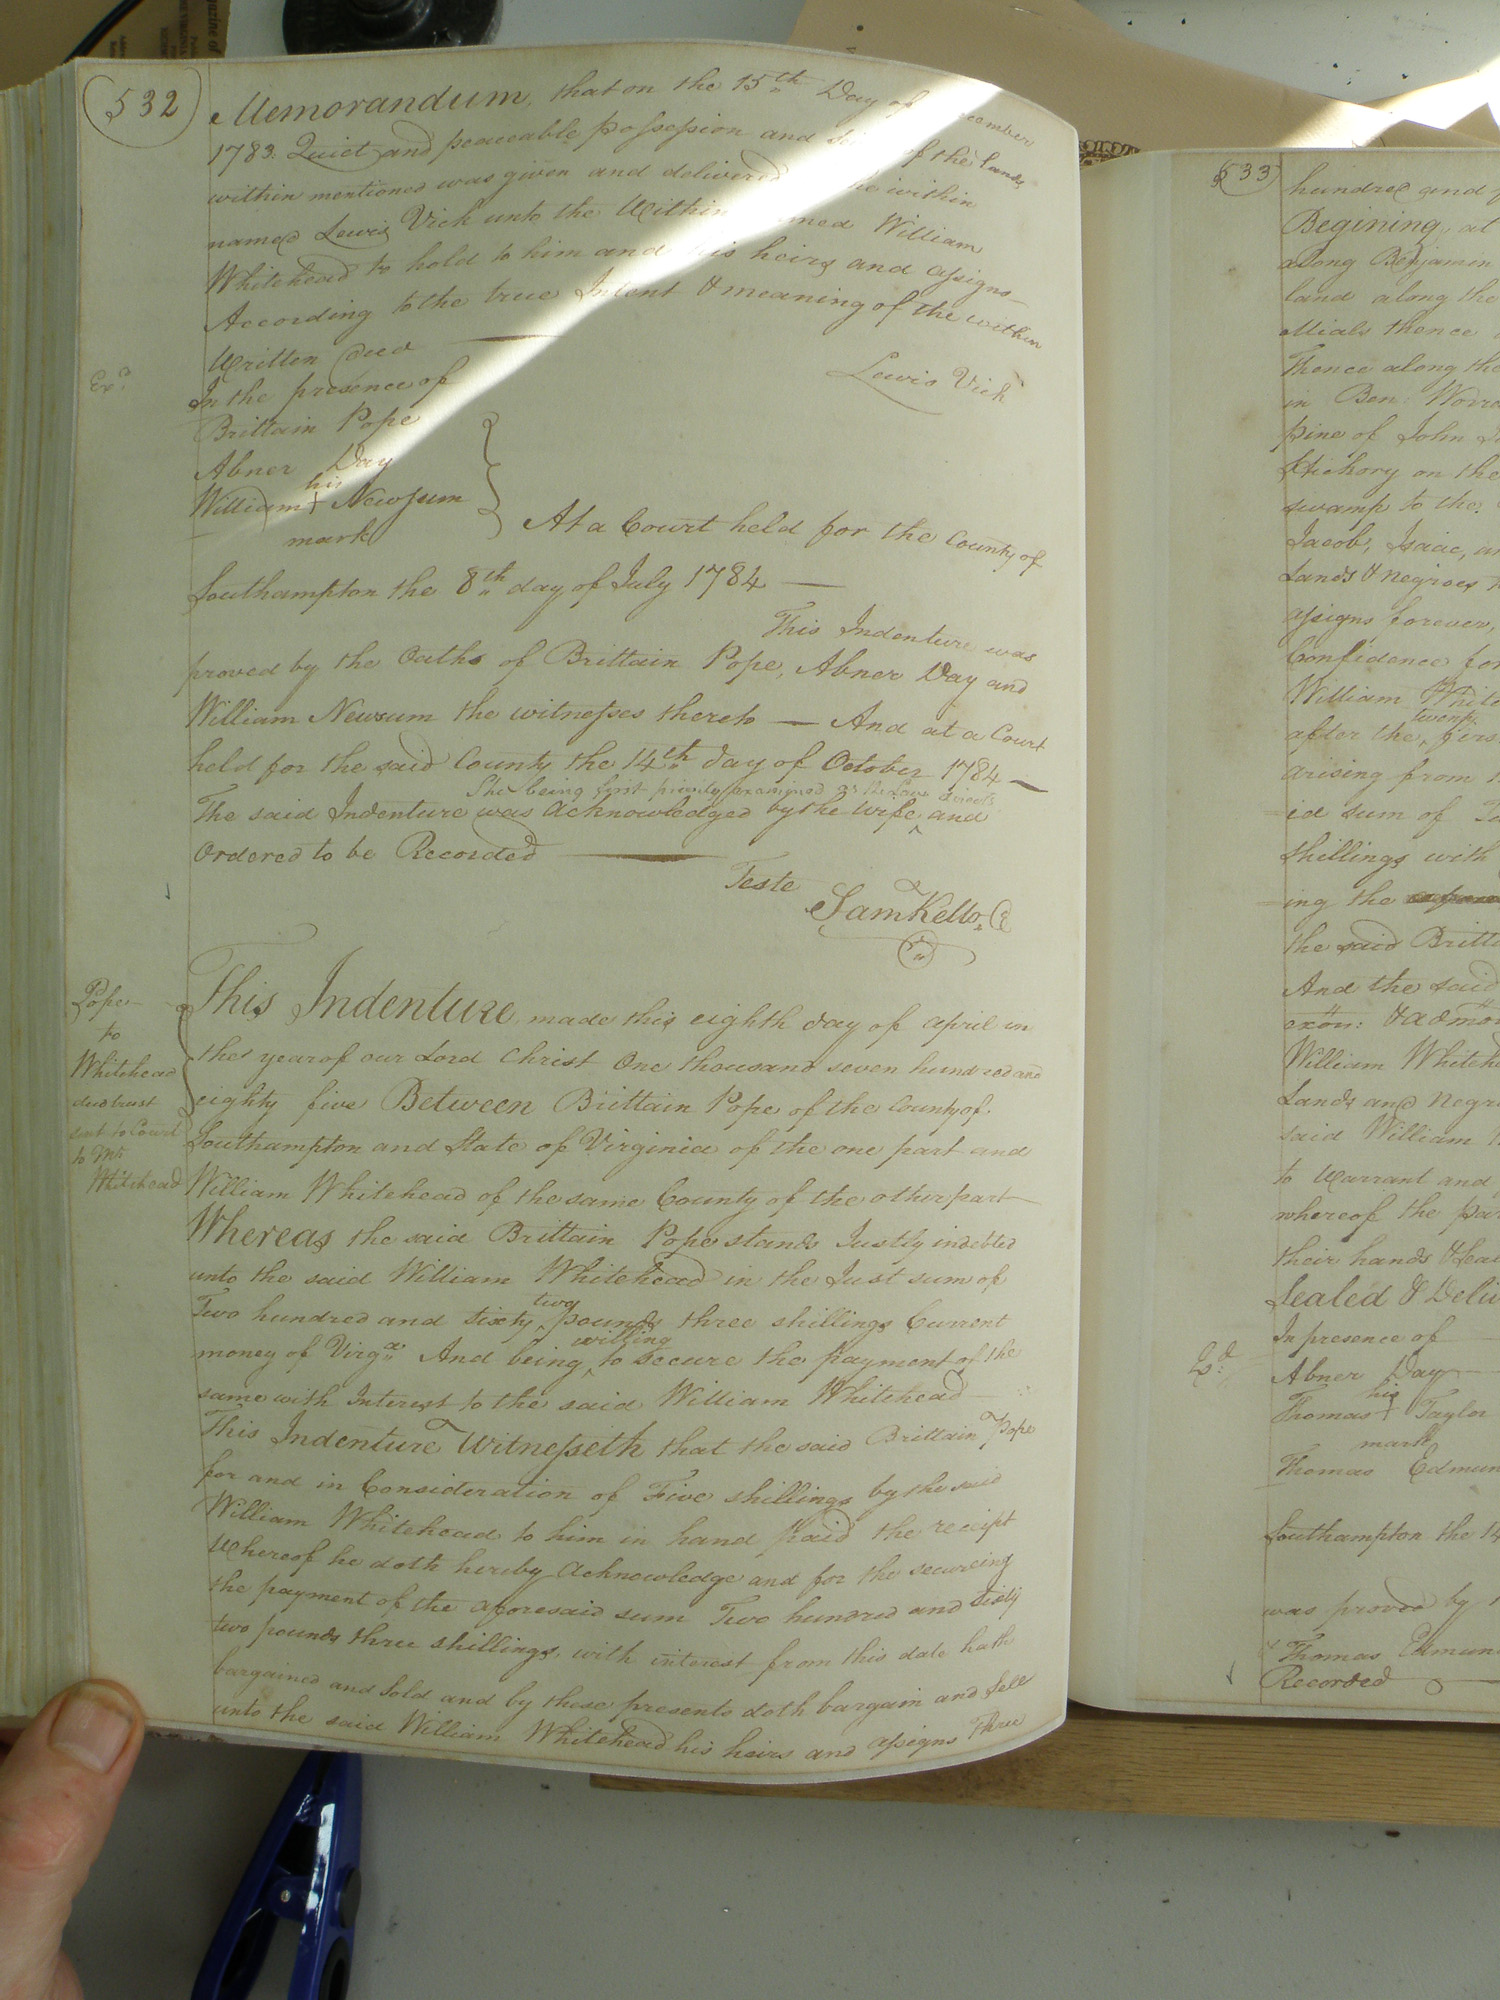 532
Memorandum, that on the 15th Day of
1783. Quiet and peaceable possession and of the lands
within mentioned was given and delivered within
named Lewis Vick unto the Within William
Whitehead to hold to him and his heirs and assigns
According to the true Intent & meaning of the within
Written deed
Lewis Vick
Exd.
In the presence of
Brittain Pope
Abner Day
his
William + Newsum
mark
At a Court held for the County of
Southampton the 8th day of July 1784
This Indenture was
proved by the Oaths of Brittain Pope, Abner Day and
William Newsum the witnesses thereto — And at a Court
held for the said County the 14th day of October 1784 —
She being first privily examined as the Law directs
The said Indenture was Acknowledged by the Wife ^ and
Ordered to be Recorded
Teste
Sam Kello. C
Pope
to
Whitehead
deed trust
sent to Court
to Mr
Whitehead
This Indenture, made this eighth day of april in
the year of our Lord Christ One thousand seven hundred and
eighty five Between Brittain Pope of the County of
Southampton and State of Virginia of the one part and
William Whitehead of the same County of the other part
Whereas the said Brittain Pope stands Justly indebted
unto the said William Whitehead in the Just sum of
two
Two hundred and Sixty ^ pounds three shillings Current
willing
money of Virga. And being ^ to secure the payment of the
same with Interest to the said William Whitehead
This Indenture Witnesseth that the said Brittain Pope
for and in Consideration of Five shillings by the said
William Whitehead to him in hand paid the receipt
Whereof he doth hereby Acknowledge and for the secureing
the payment of the aforesaid sum Two hundred and sixty
two pounds three shillings, with interest from this date hath
bargained and Sold and by these presents doth bargain and Sell
unto the said William Whitehead his heirs and assigns Three
533
hundred and
Begining, at
along Benjamin
land along the
Mials thence
Thence along the
in Ben
pine of John
Hickory on the
swamp to the
Jacob, Isaac,
Lands & Negroes
assigns forever,
Confidence for
William
twenty
after the ^ firs
arising from
id sum of
shillings with
ing the
the said Britt
And the said
exōn: & admōn
William Whiteh
Lands and Negr
said William
to Warrant and
whereof the par
their hands & Seal
Sealed & Deliv
In presence of
Exd.
Abner Day
his
Thomas + Taylor
mark
Thomas Edmun
Southampton the 14
was proved by
Thomas Edmun
Recorded